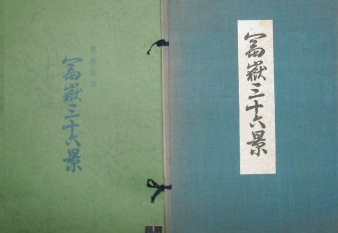 冨嶽三十六景
冨嶽三十六景